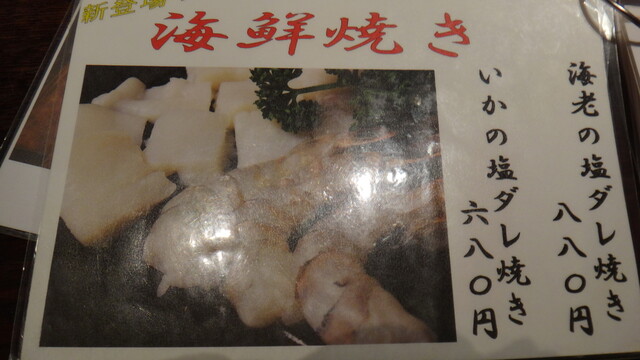 新登場
海鮮焼き
海老の塩ダレ焼き
八八〇円
いかの塩ダレ焼き
六八〇円